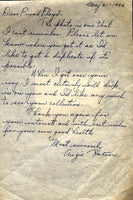 May 21-1966
Dear Friend Floyd:
The photo is one that
I can't remember. Please let me
know where you got it as I'd
like to get a duplicate of it
possible.
When I get over your
way I most certainly will drop
in on you and I'd like very much
to see your collection.
Thank you again for
your interest and
your good health
Most sincerely